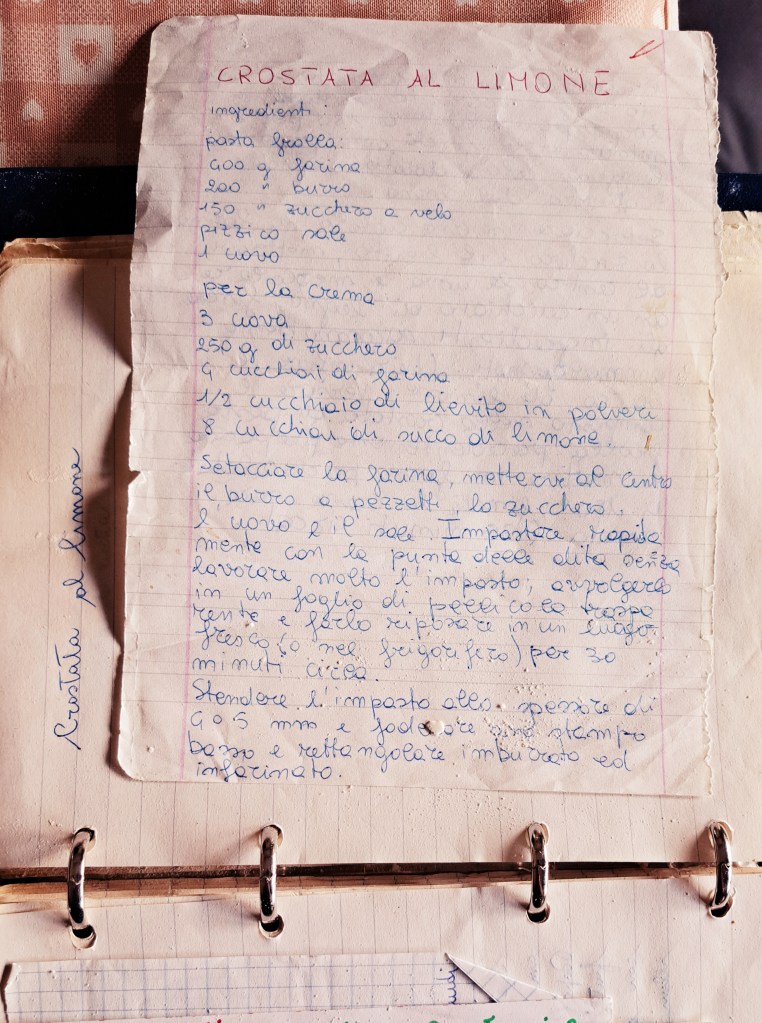 CROSTATA AL LIMONE
ingredienti:
pasta frolla:
400 g farina
200 " burro
150 " zucchero a velo
pizzico sale
1 uovo
per la crema
3 uova
250 g di zucchero
4 cucchiai di farina
1/2 cucchiaio di lievito in polvere
8 cucchiai di succo di limone.
Setacciare la farina, mettervi al centro
il burro a pezzetti, lo zucchero,
l'uovo e il sale. Impastare rapida
mente con la punta delle dita senza
lavorare molto l'impasto; avvolgerlo
in un foglio di pellicola traspa
rente e farlo riposare in un luogo
fresco (o nel frigorifero) per 30
minuti circa.
Stendere l'impasto allo spessore di
4 o 5 mm e foderare uno stampo
basso e rettangolare imburrato ed
infarinato.
Crostata al limone